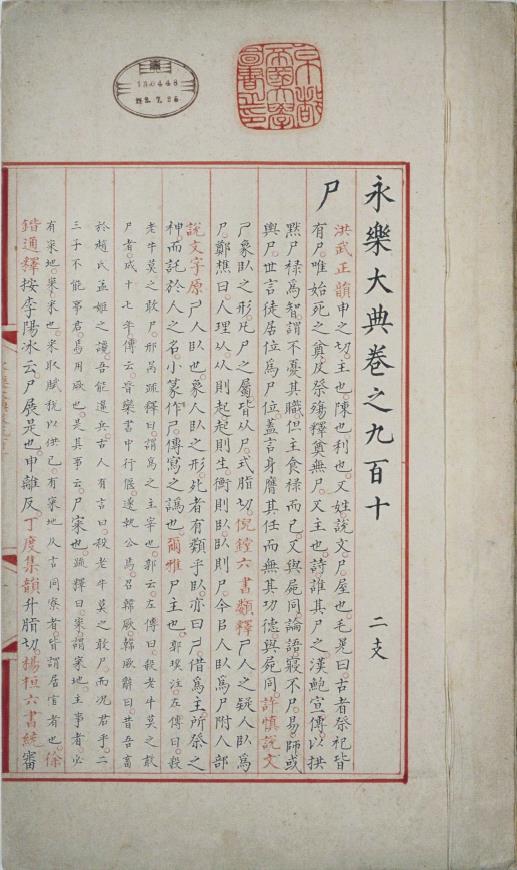 京都帝國大學圖書之印
130448
永樂大典卷之九百十 二支
尸
洪武正韻申之切主也陳也利也又姓說文尸屋也毛晃曰古者祭祀皆
有尸唯始死之奠及祭殤釋奠無尸又主也詩誰其尸之漢鮑宣傳以拱
黙尸祿爲智謂不憂其職但主食祿而已又與屍同論語寢不尸易師或
輿尸世言徒居位爲尸位葢言身膺其任而無其功德與屍同許慎說文
尸象臥之形凡尸之屬皆从尸式脂切倪鏜六書類釋尸人之疑人臥爲
尸鄭樵曰人理从从則起起則生衡則臥臥則尸今㠯人臥爲尸附人部
說文字原尸人臥也象人臥之形死者有類乎臥亦曰尸借爲主所祭之
神而託於人之名小篆作尸傳寫之譌也爾雅尸主也郭璞注左傳曰殺
老牛莫之敢尸邢昺疏釋曰謂爲之主宰也郭云左傳曰殺老牛莫之敢
尸者成十七年傳云晉欒書中行偃遂執公焉召韓厥韓厥辭曰昔吾畜
於趙氏孟姬之讒吾能違兵古人有言曰殺老牛莫之敢尸而况君乎二
三子不能事君焉用厥也是其事云尸寀也疏釋曰寀謂寀地主事者必
有寀地寀采也采取賦稅以供己有寀地及古同寮者皆謂居官者也徐
鍇通釋按李陽冰云尸展是也申離反丁度集韻升脂切楊桓六書統審